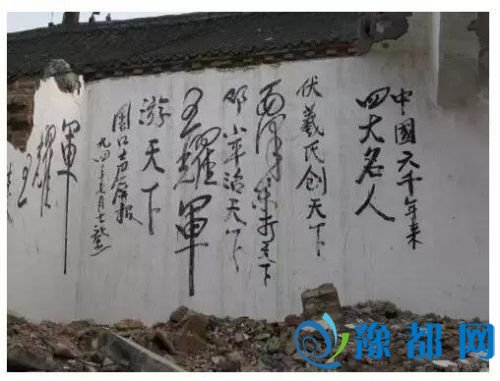 中國六千年来
四大名人
伏羲氏创天下
毛泽东打天下
邓小平治天下
王耀軍
游天下
周口 报
九四年 月七
王耀軍
豫都网